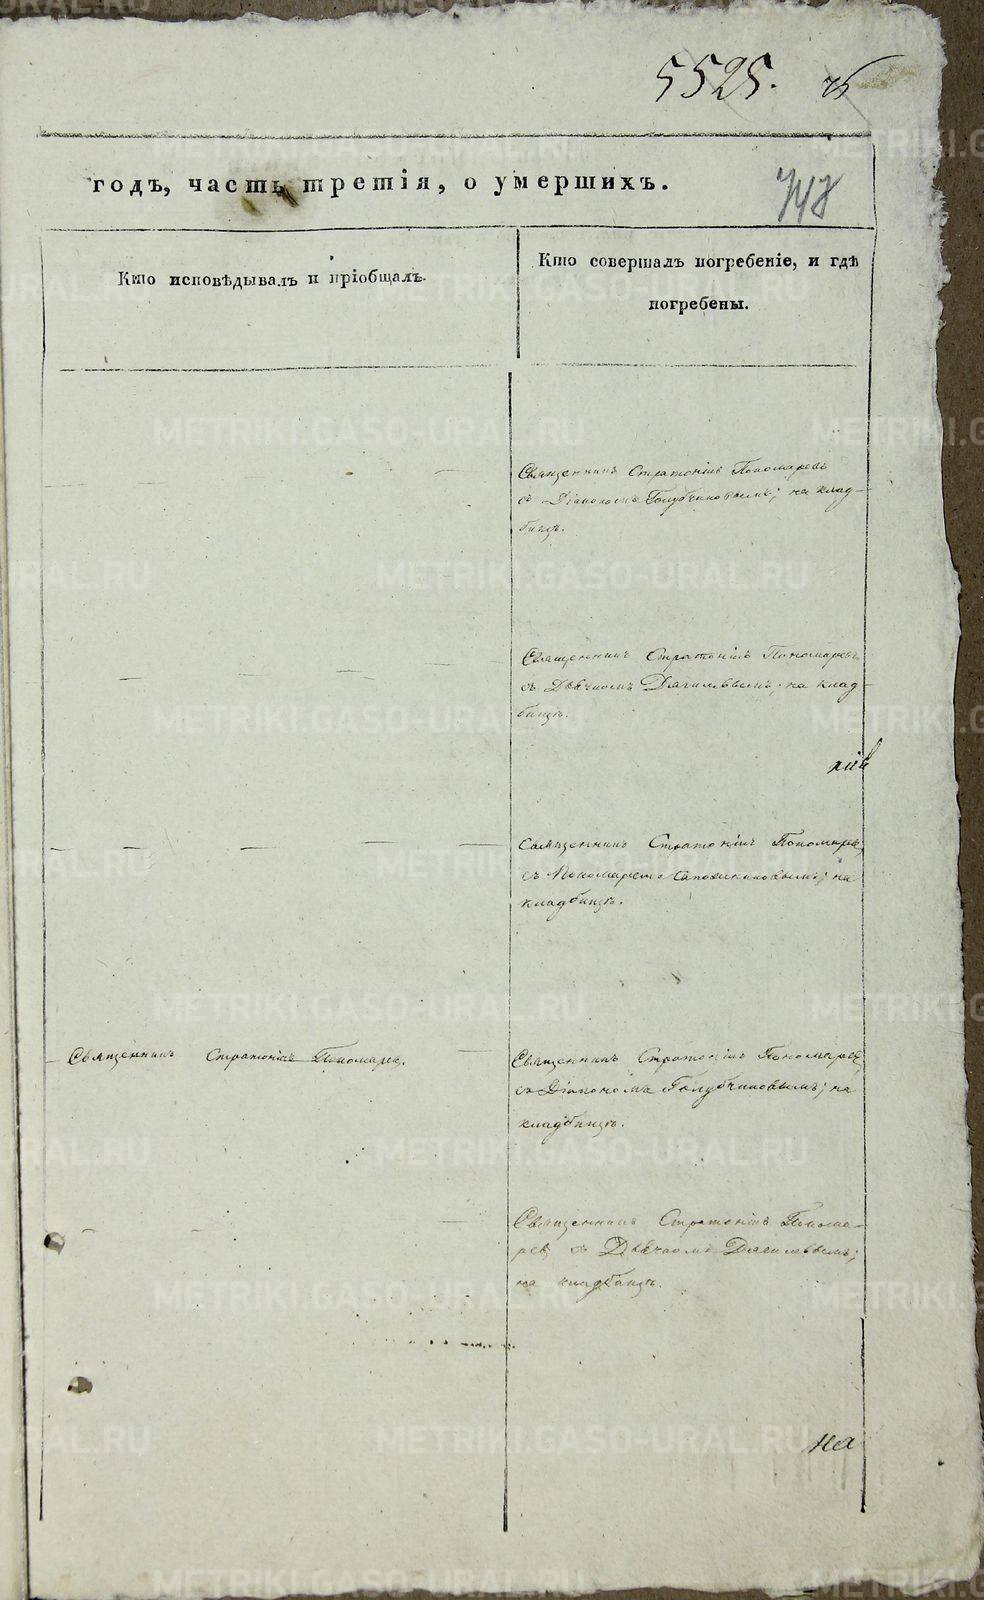 5525.
748
годъ, часть третія, о умершихъ.
Кто исповѣдывалъ и пріобщалъ.
Кто совершалъ погребеніе, и гдѣ
погребены.
Священникъ Стратоникъ Пономаревъ
съ Діакономъ Голубчиковымъ; на клад-
бищѣ.
Священникъ Стратоникъ Пономаревъ
съ Дьячкомъ Дягилевымъ; на клад-
бищѣ.
Священникъ Стратоникъ Пономаре,
съ Пономаремъ Сапожниковымъ; на
кладбищѣ.
Священникъ Стратоникъ Пономаре.
Священникъ Стратоникъ Пономарев,
съ Діакономъ Голубчиковымъ; на
кладбищѣ.
Священникъ Стратоникъ Понома-
рев съ Дьячкомъ Дягилевымъ;
на кладбищѣ.
на
METRIKI.GASO-URAL.RU